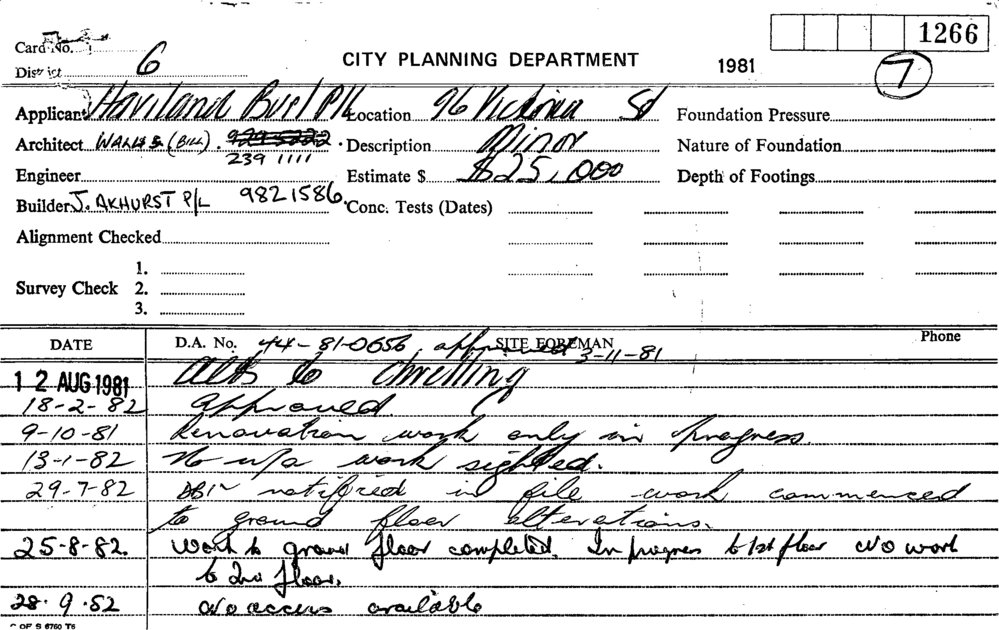 1266
Card No.
District 6 CITY PLANNING DEPARTMENT 1981 7
Applicant Haviland Bus! P/L Location 96 Victoria St Foundation Pressure
Architect WALLIS (BILL). 9295222 Description Minor Nature of Foundation
239 1111
Engineer Estimate $ $25,000 Depth of Footings
Builder J. AKHURST P/L 9821586 Conc. Tests (Dates)
Alignment Checked
1.
Survey Check 2.
3.
DATE D.A. No. 44-81-0656 approved 3-11-81 SITE FOREMAN Phone
12 AUG 1981 Alts to dwelling
18-2-82 approved
9-10-81 Renovation work only in progress
13-1-82 No u/a work sighted.
29-7-82 notified in file work commenced
to ground floor alterations.
25-8-82. Work to ground floor completed. In progress to 1st floor No work
to 2nd floor.
28.9.82 No access available
C OF S 6760 T6